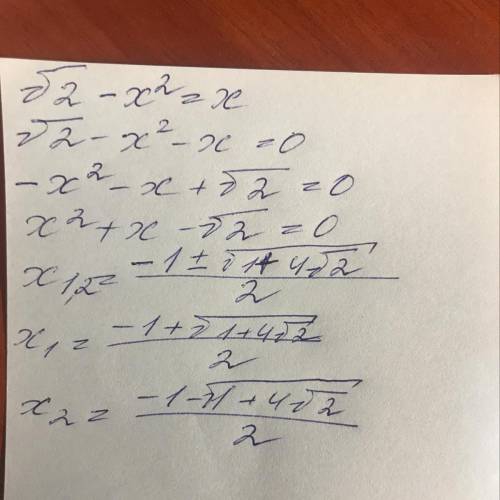 √2 - x² = x
√2 - x² - x = 0
-x² - x + √2 = 0
x² + x - √2 = 0
x₁,₂ = (-1 ± √(1 + 4√2))/2
x₁ = (-1 + √(1 + 4√2))/2
x₂ = (-1 - √(1 + 4√2))/2